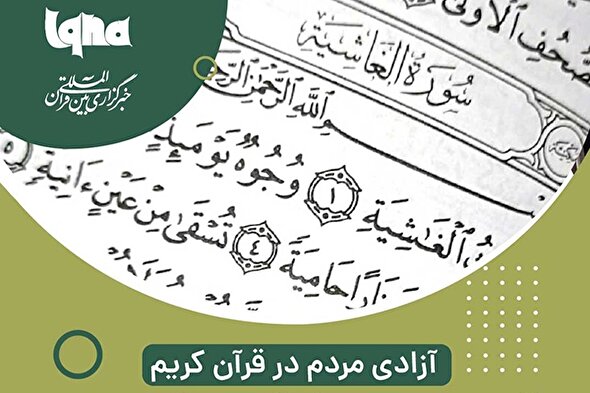 iqna
خبرگزاری بین‌المللی قرآن
صُحُفِ ٱلْأُولَىٰ
سُورَةُ الغَاشِيَةِ
ٱللَّهِ ٱلرَّحْمَٰنِ
ٱلْغَٰشِيَةِ ١ وُجُوهٌ يَوْمَئِذٍ
نَارًا حَامِيَةً ٤ تُسْقَىٰ مِنْ عَيْنٍ ءَانِيَةٍ ٥
آزادی مردم در قرآن کریم